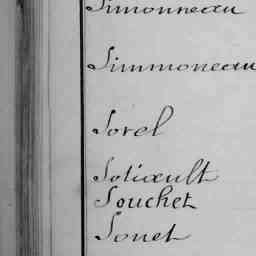 Simonneau
Simmoneau
Sorel
Soliœult
Souchet
Sonet